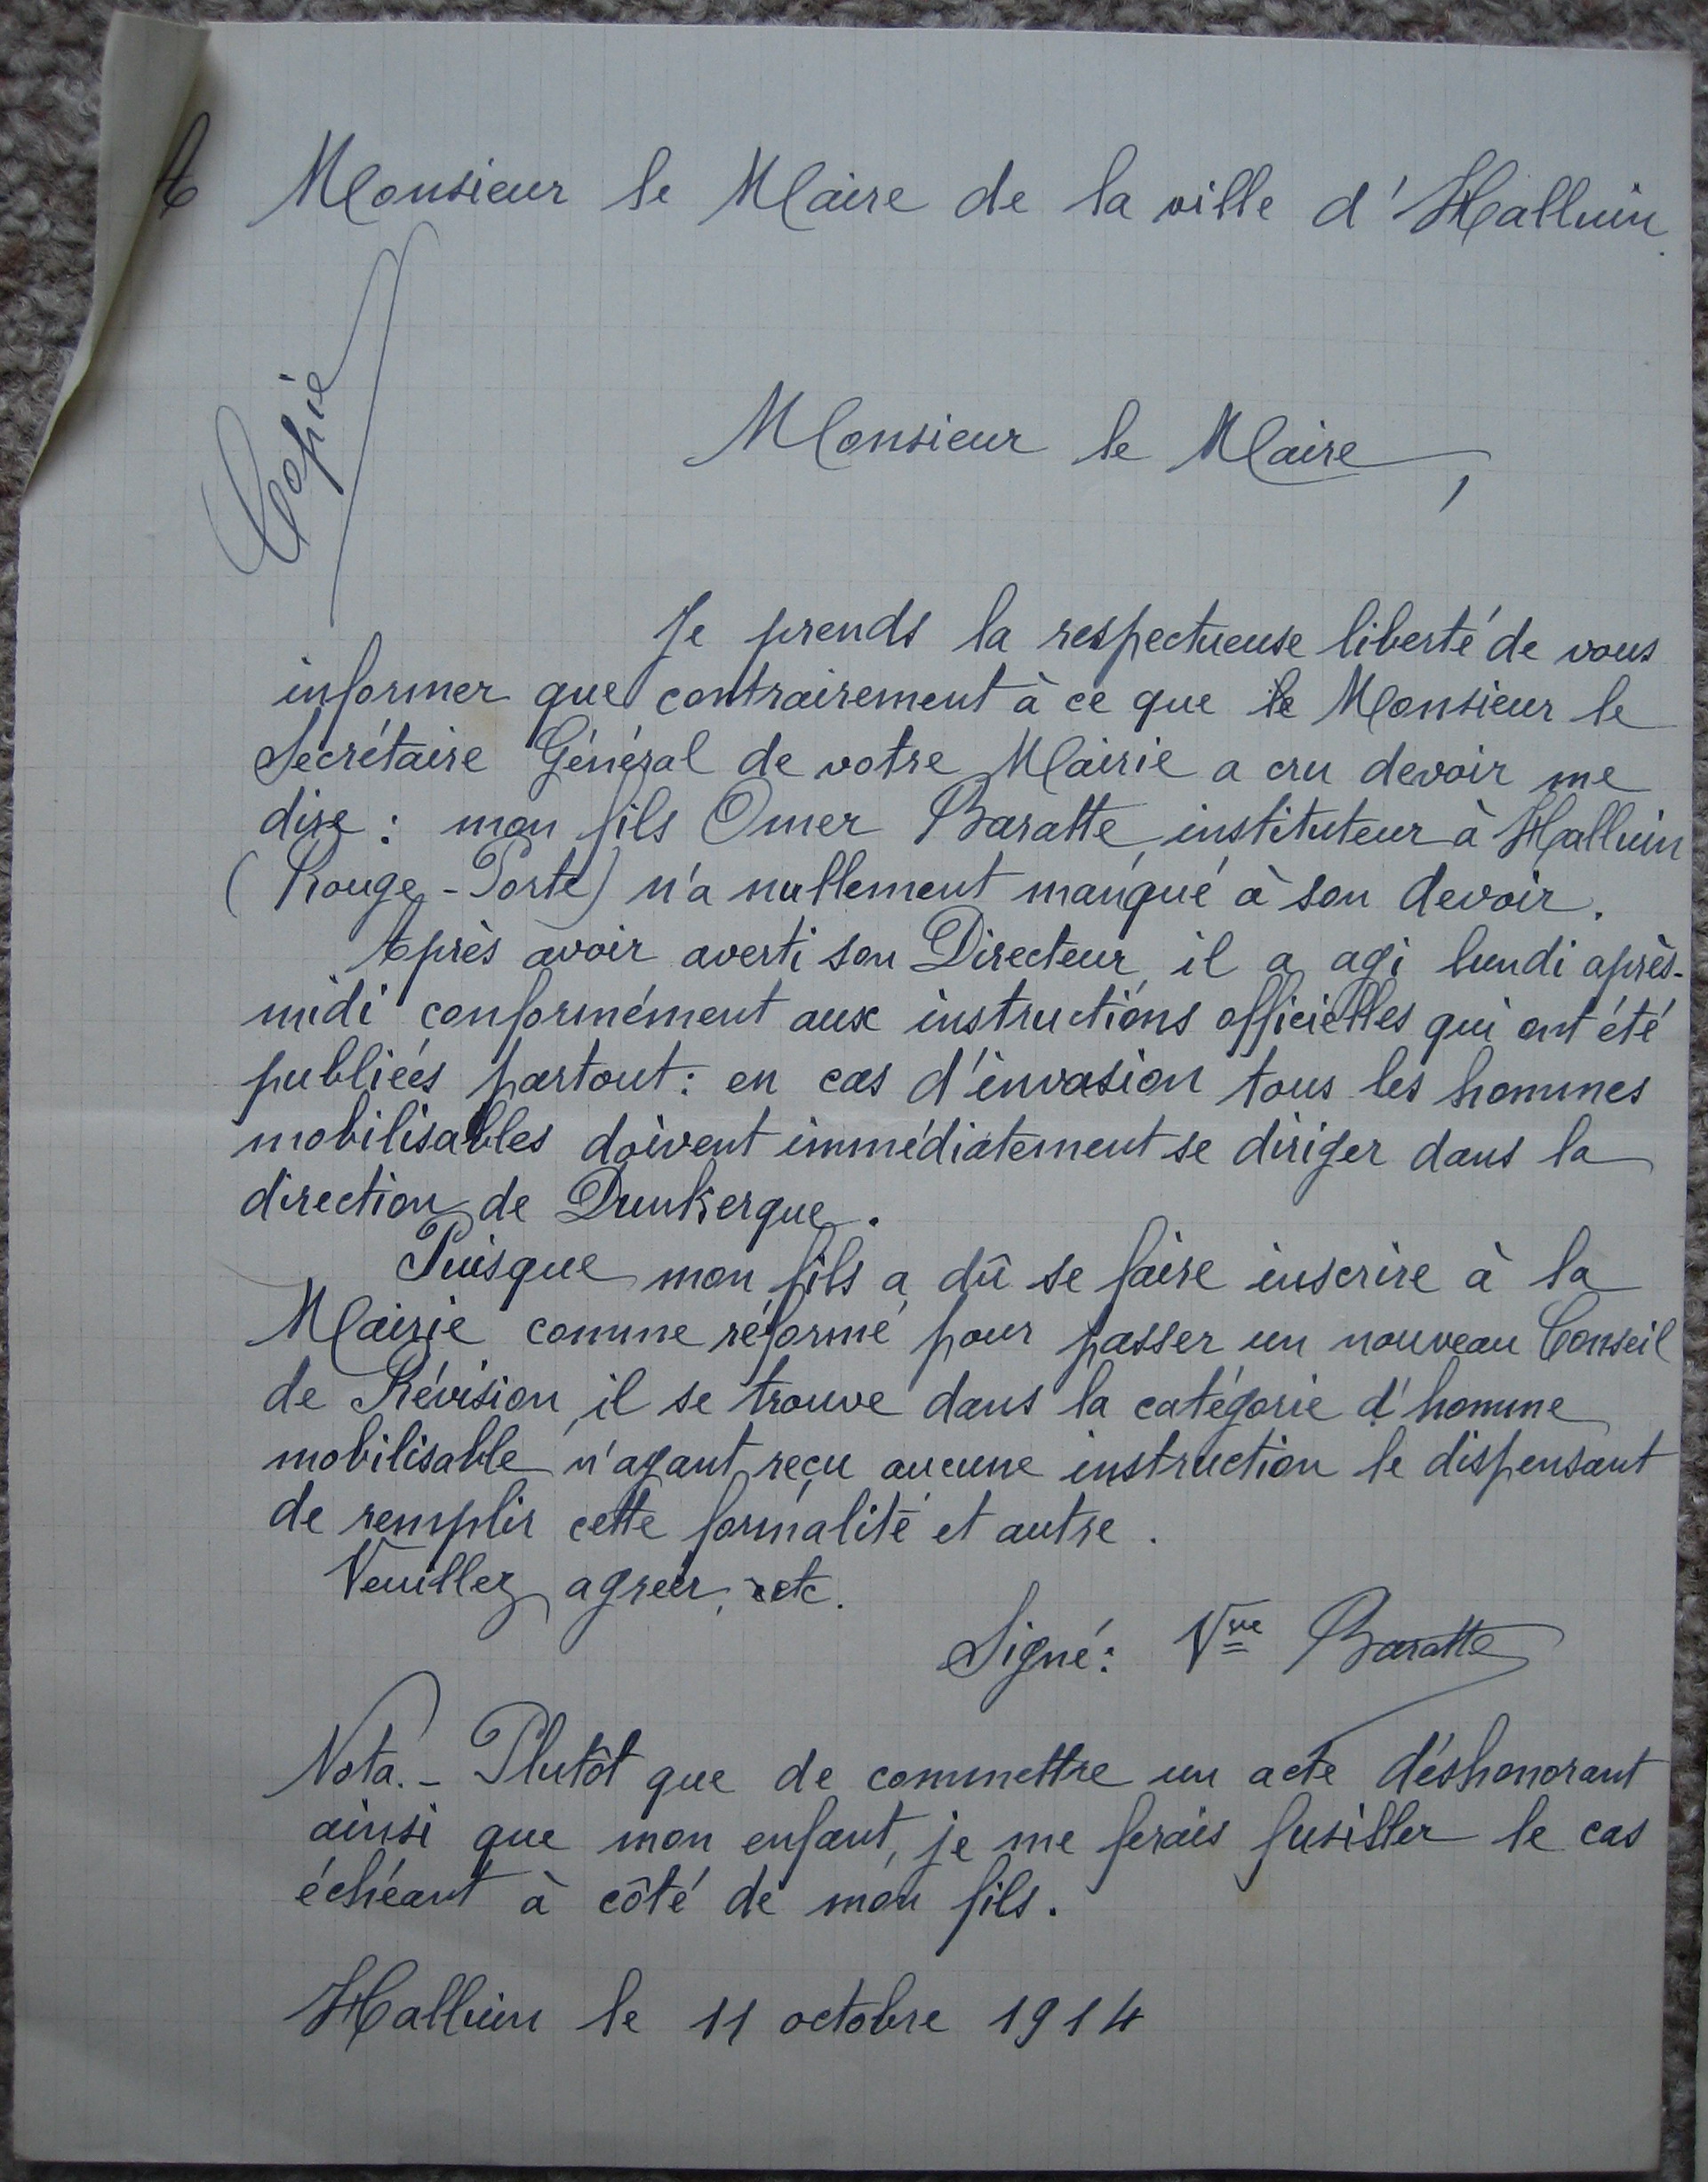 A Monsieur le Maire de la ville d'Halluin.
Copie
Monsieur le Maire,
Je prends la respectueuse liberté de vous
informer que contrairement à ce que le Monsieur le
Secrétaire Général de votre Mairie a cru devoir me
dire : mon fils Omer Baratte, instituteur à Halluin
(Rouge-Porte) n'a nullement manqué à son devoir.
Après avoir averti son Directeur, il a agi lundi après-
midi conformément aux instructions officielles qui ont été
publiées partout : en cas d'invasion tous les hommes
mobilisables doivent immédiatement se diriger dans la
direction de Dunkerque.
Puisque mon fils a dû se faire inscrire à la
Mairie comme réformé pour passer un nouveau Conseil
de Révision, il se trouve dans la catégorie d'homme
mobilisable n'ayant reçu aucune instruction le dispensant
de remplir cette formalité et autre.
Veuillez agréer, etc.
Signé : Vve Baratte
Nota. - Plutôt que de commettre un acte déshonorant
ainsi que mon enfant, je me ferais fusiller le cas
échéant à côté de mon fils.
Halluin le 11 octobre 1914